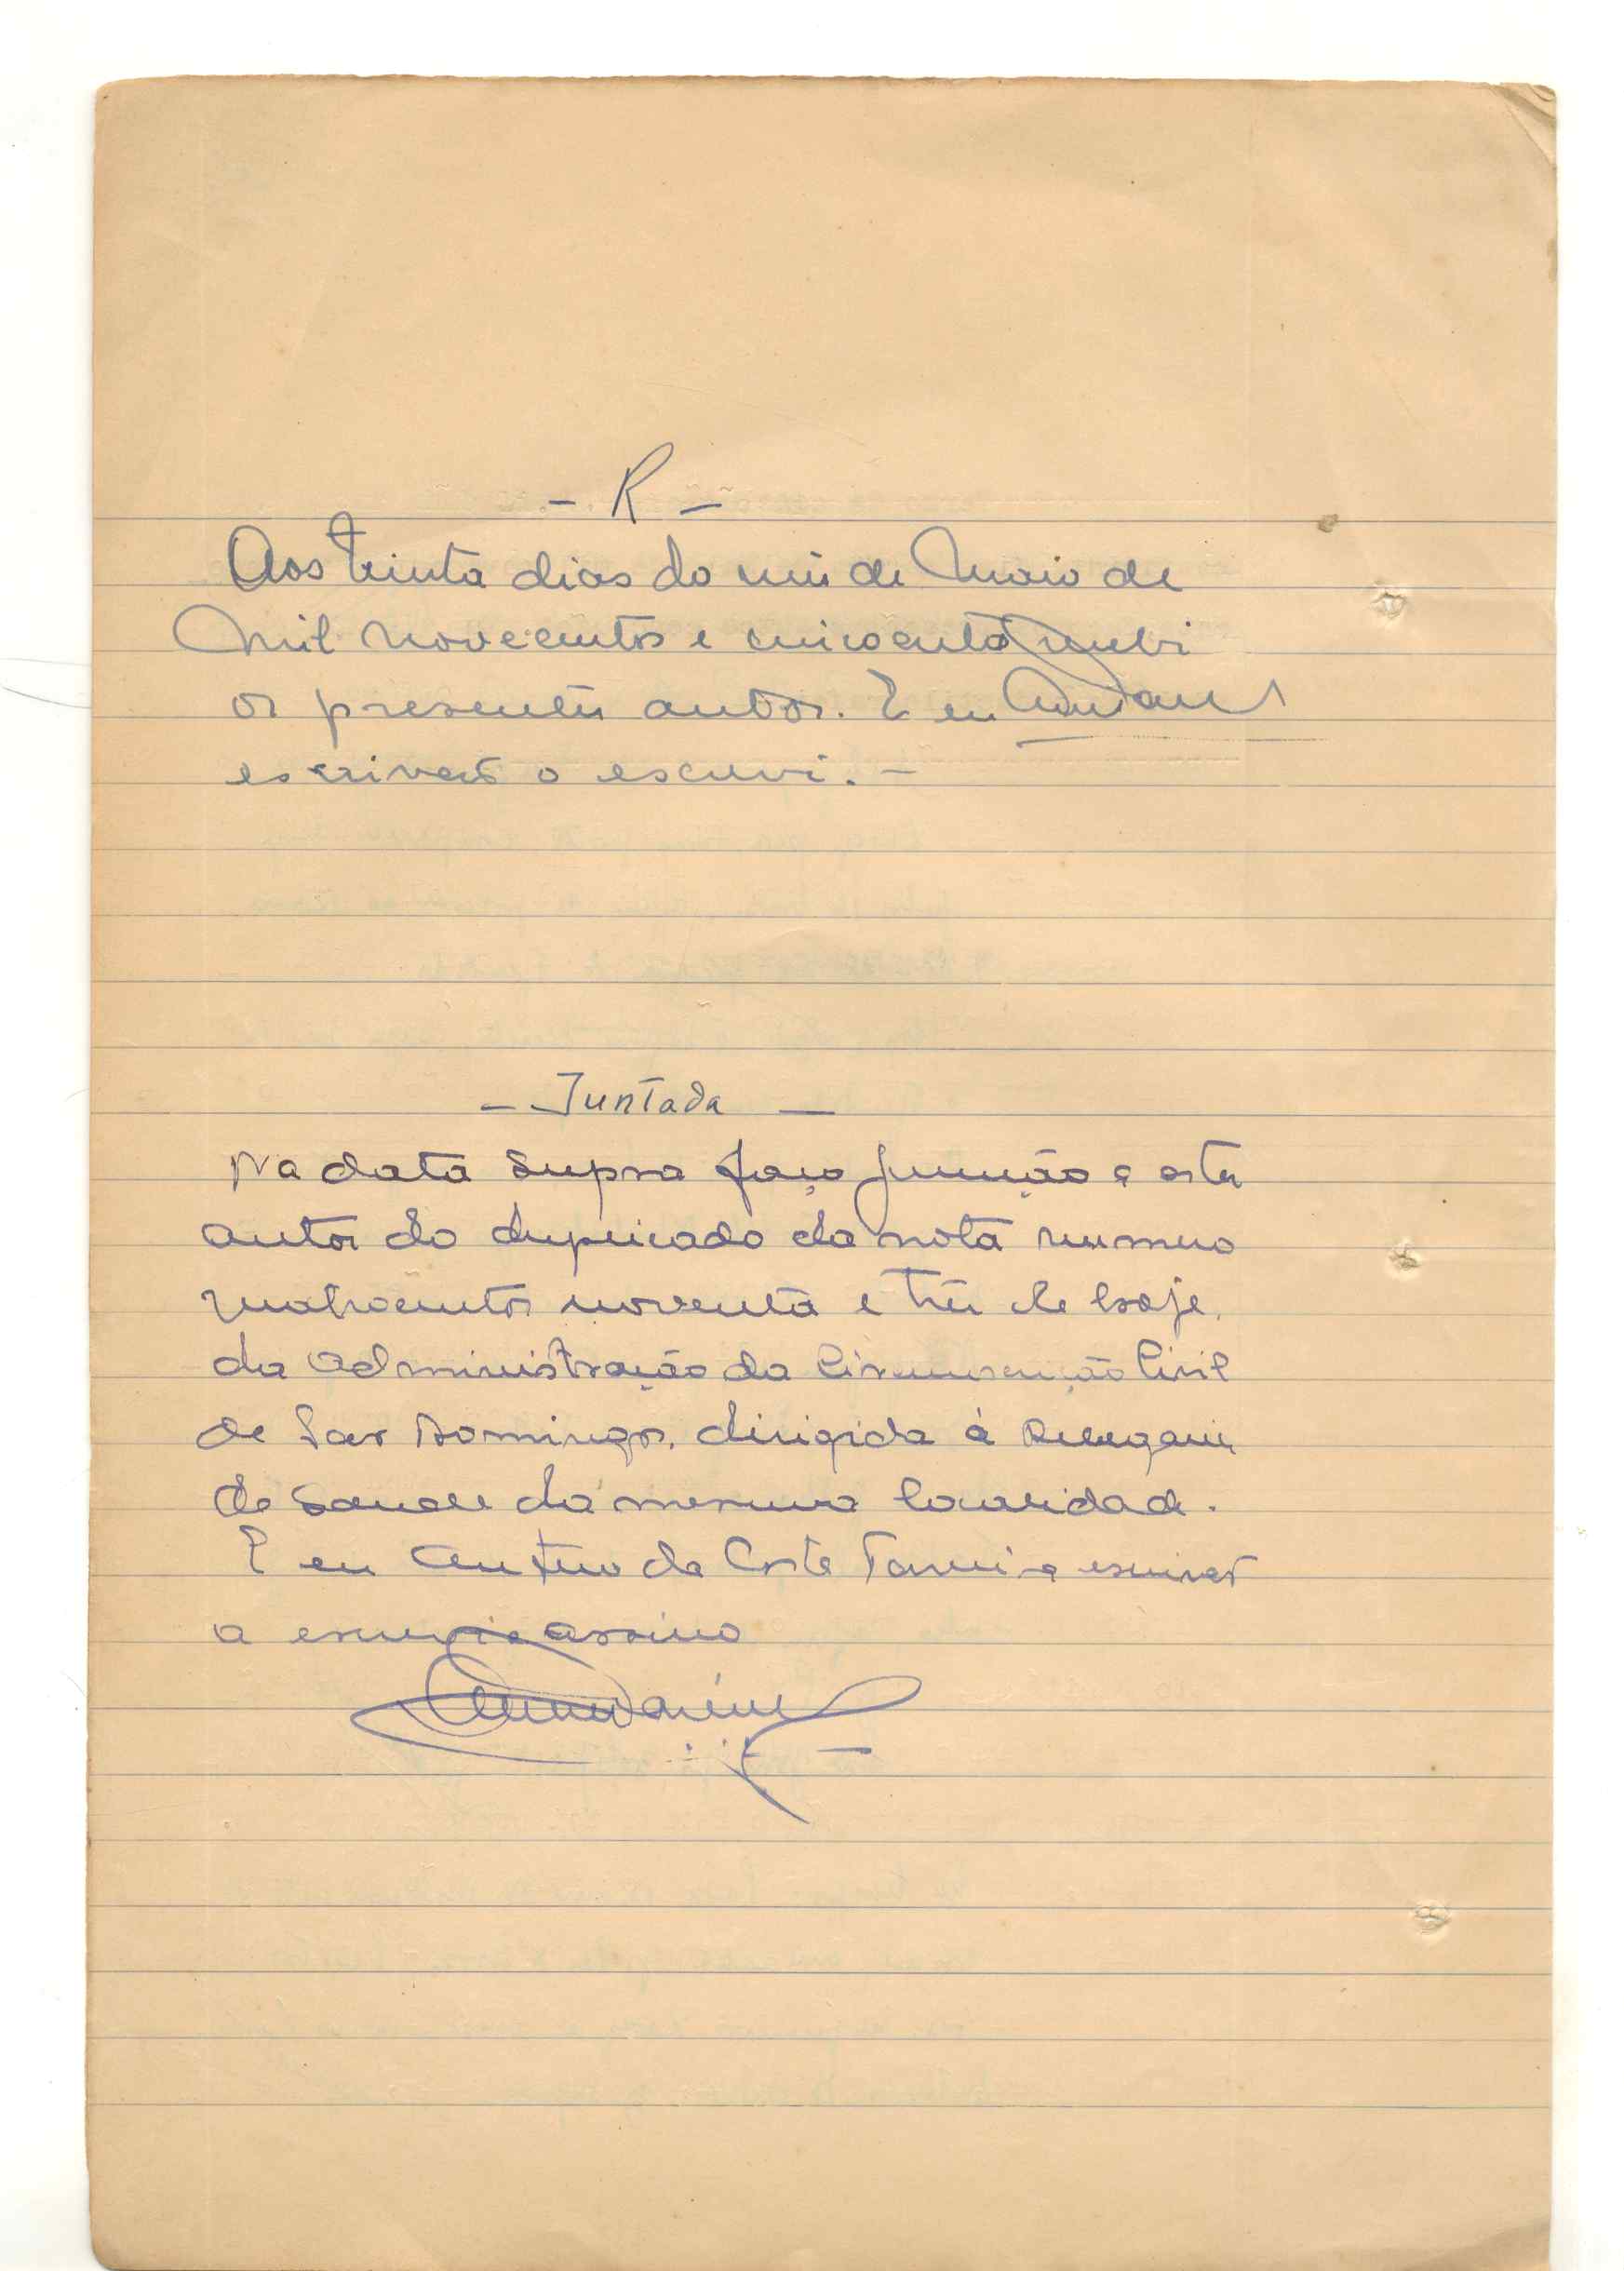 - R -
Aos trinta dias do mês de Maio de
mil novecentos e cincoenta recebi
os presentes autos. E eu
escrivão o escrevi. -
- Juntada -
Na data supra faço junção a estes
autos do duplicado da nota numero
quatrocentos noventa e três de hoje,
da Administração da Circunscrição Civil
de São Domingos, dirigida à Delegacia
de Saude da mesma localidade.
E eu da Costa escrivão
a escrevi e assino